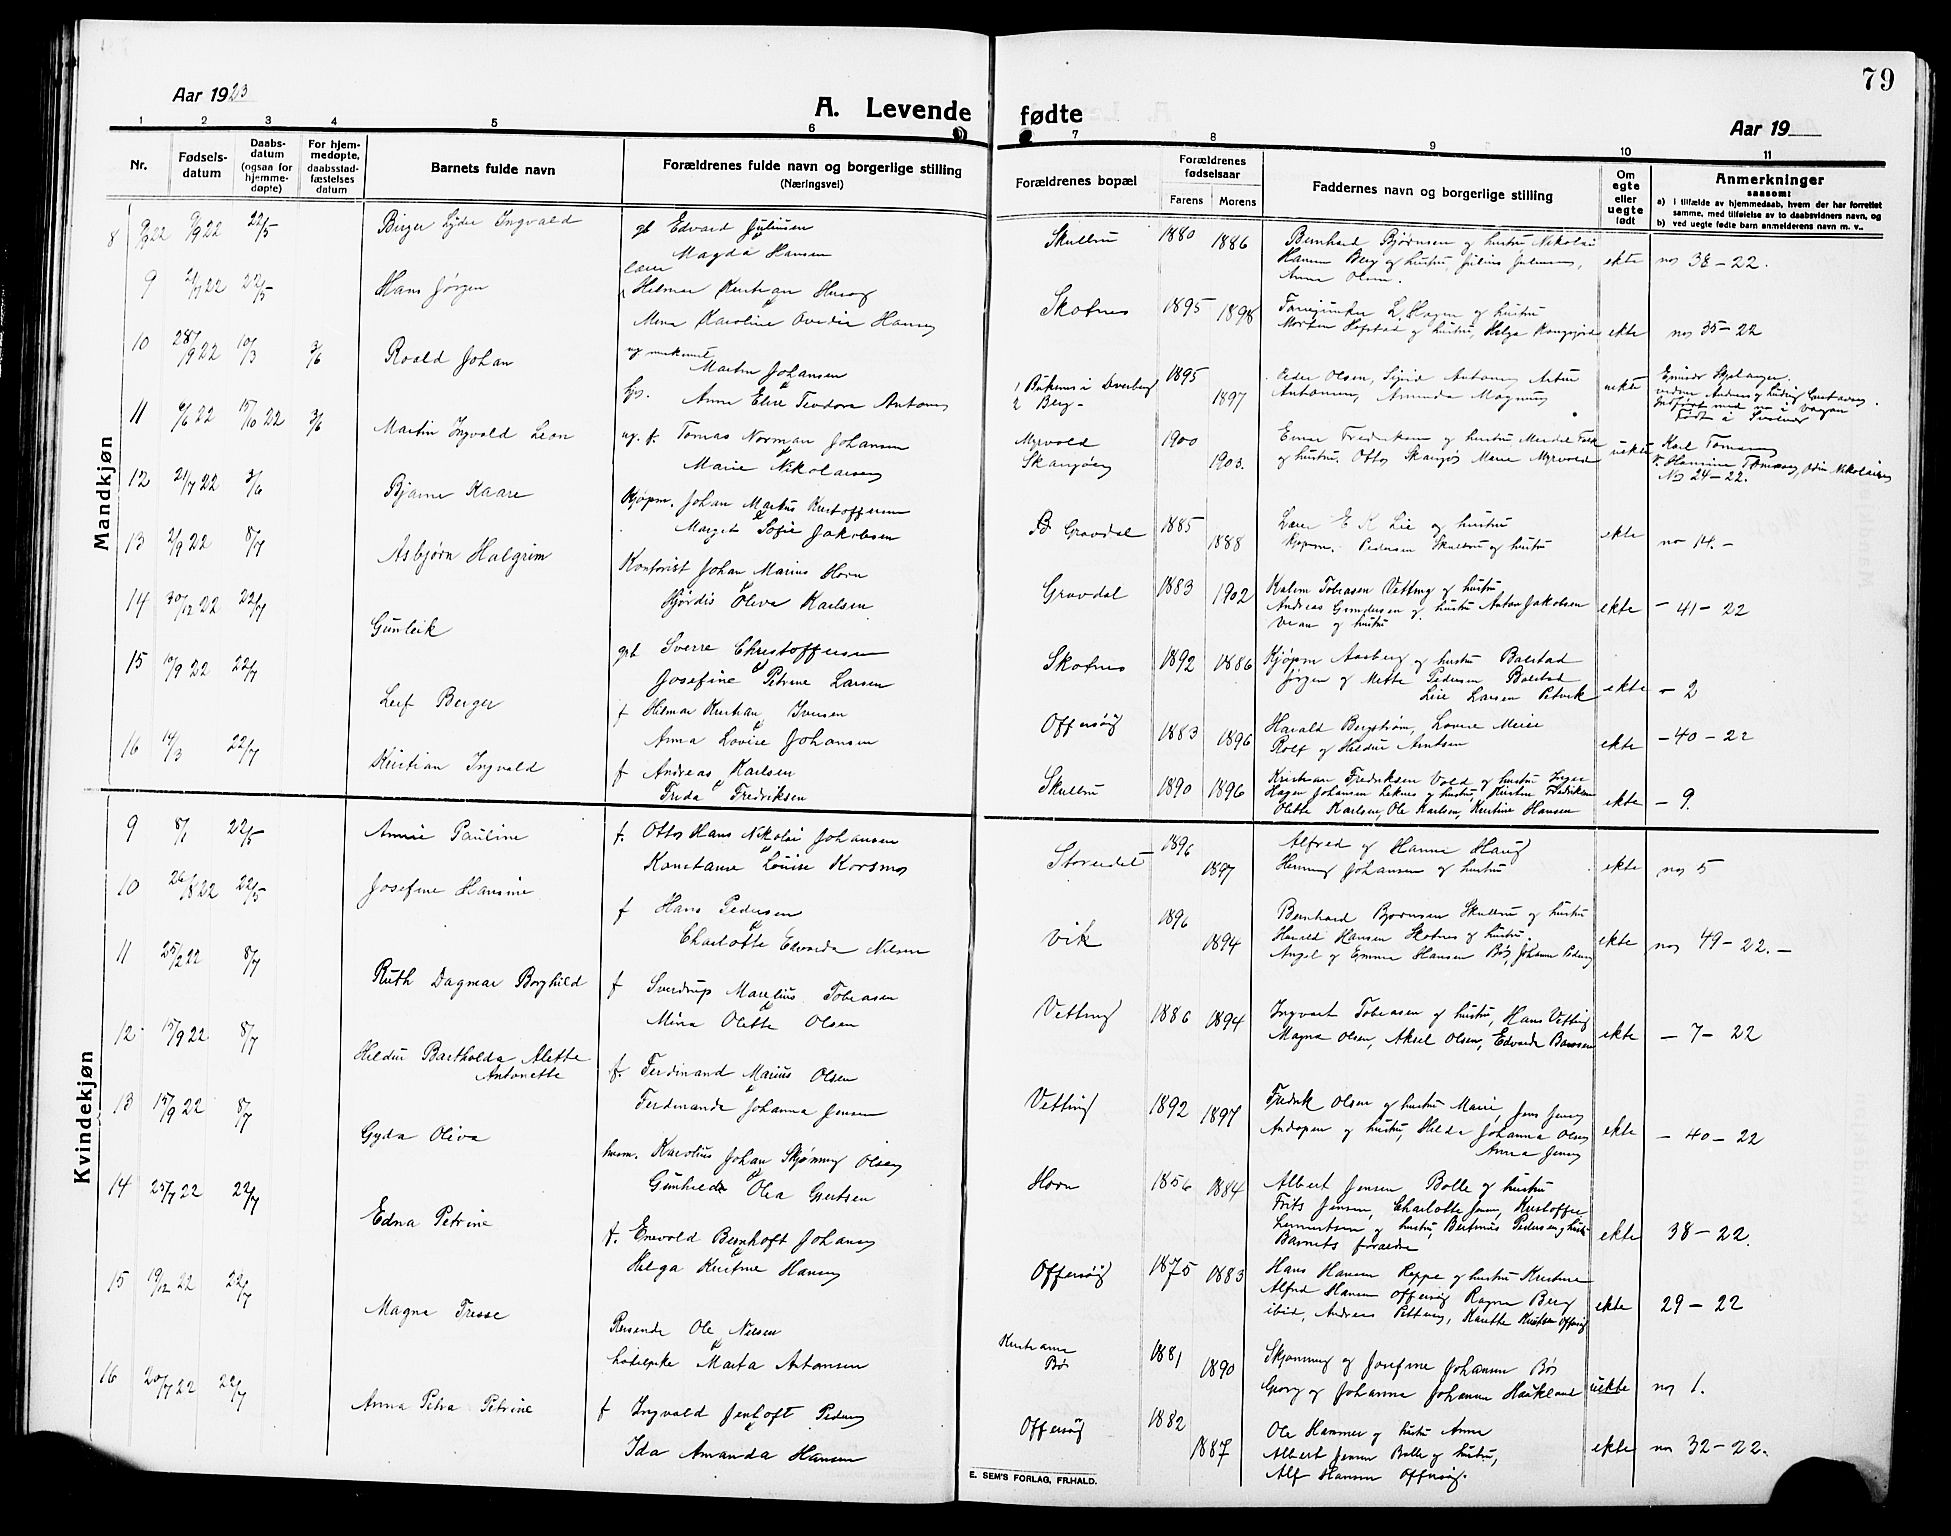 79
Aar 1923
A. Levende fødte
Aar 19
1 2 3 4 5 6 7 8 9 10 11
Nr.
Fødsels-
datum
Daabs-
datum
(ogsaa for
hjemme-
døpte)
For hjem-
medøpte,
daabsstad-
fæstelses
datum
Barnets fulde navn
Forældrenes fulde navn og borgerlige stilling
(Næringsvei)
Forældrenes bopæl
Forældrenes
fødselsaar
Farens Morens
Faddernes navn og borgerlige stilling
Om
egte
eller
uegte
født
Anmerkninger
saasom:
a) i tilfælde av hjemmedaab, hvem der har forrettet
samme, med tilføielse av to daabsvidners navn, og
b) ved uegte fødte barn anmelderens navn m. v..
Mandkjøn
8 9/9 22 22/5 Birger Lyder Ingvald
gb Edvard Juliussen
Magda Hansen
Skullbru 1880 1886
Bernhard Bjørnsen og hustru Nikolai
Hansen Berg og hustru, Julius Juliussen,
Anna Olsen.
ekte no 38-22.
9 2/7 22 22/5 Hans Jørgen
Hilmar Kristian Herzog
Mina Karoline Ovedie Hansen
Skotnes 1895 1898
L. Hagen og hustru
Morten Hofstad og hustru, Helga
ekte no 35-22
10 28/9 22 10/3 3/6 Roald Johan
Martin Johansen
Anna Elise Teodora Antonsen
1 Dverberg
2 Berg-
1895 1897
Peder Olsen, Sigrid Antonsen Artur
Antonsen, Amanda Magnus
uekte
11 4/6 22 15/10 22 3/6 Martin Ingvald Leon
ug. f. Tomas Norman Johansen
Marie Nikolaisen
Myrvold
Skangøen
1900 1903.
Einar Fredriksen og hustru
og hustru. Otto Skangøs Marie Myrvold
uekte Karl Tomassen
No 24-22.
12 21/7 22 3/6 Bjarne Kaare
Kjøpm. Johan Markus Kristoffersen
Margit Sofie Jakobsen
Gravdal 1885 1888
Lærer E K Lie og hustru
Kjøpm. Pedersen Skullbru og hustru
ekte no 14.-
13 2/9 22 8/7 Asbjørn Halgrim
Kontorist Johan Marius Horn
Hjørdis Oliva Karlsen
Gravdal 1883 1902
Kalem Tobiassen Vetting og hustru
Andreas Gundersen og hustru Anton Jakobsen
og hustru
ekte - 41-22
14 30/12 22 22/7 Gunleik
gb Sverre Christoffersen
Josefine Petrine Larsen
Skotnes 1892 1886
Kjøpm Aasberg og hustru Balstad
Jørgen og Mette Pedersen Balstad
Leie Larsen Petvik
ekte - 2
15 10/9 22 22/7 Leif Berger
f Hilmar Kristian Iversen
Anna Lovise Johansen
Offersøy 1883 1896
Harald Bergstrøm, Lovise Meier
Rolf og Heldur Arntsen
ekte - 40-22
16 14/3 22/7 Kristian Ingvald
f Andreas Karlsen
Frida Fredriksen
Skullbru 1890 1896
Kristian Fredriksen Vold og hustru Inger
Hagen Johansen Leknes og hustru, Kristine Fredriksen
Olette Karlsen, Ole Karlsen, Kristine Hansen
ekte - 9.
Kvindekjøn
9 8/1 22/5 Annie Pauline
f. Otto Hans Nikolai Johansen
Konstanse Louise Korsmo
Storeidet 1896 1897
Alfred og Hanna Haug
Henning Johansen og hustru
ekte no 5
10 26/8 22 22/5 Josefine Hansine
f Hans Pedersen
Charlotte Edvarda Nilsen
Vik 1896 1894
Bernhard Bjørnsen Skullbru og hustru
Harald Hansen Skotnes og hustru.
Angel og Emma Hansen Bø, Johanna Pedersen
ekte no 49-22.-
11 25/2 22 8/7 Ruth Dagmar Borghild
f Sverdrup Marelius Tobiassen
Mina Olette Olsen
Vetting 1886 1894
Ingvart Tobiassen og hustru, Hans Vetting
Magna Olsen, Aksel Olsen, Edvarda Bansen
ekte - 7-22
12 15/9 22 8/7 Heldur Bartholda Alette
Antonette
f. Ferdinand Marius Olsen
Ferdinanda Johanna Jensen
Vetting 1892 1897
Fredrik Olsen og hustru Marie, Jens Jensen
og hustru, Helda Johanna Olsen
Anna Jensen
ekte - 40-22
13 15/9 22 8/7 Gyda Oliva
husm. Karolius Johan Skjønning Olsen
Gunhild Olea Gjertsen
Horn 1856 1884
Albert Jensen Bolle og hustru
Frits Jensen, Charlotte Jensen, Kristoffer
Lennertsen og hustru, Bertinus Pedersen og hustru
Barnets foreldre
ekte 38-22.
14 25/7 22 22/7 Edna Petrine
f. Enevold Bernhoft Johansen
Helga Kristine Hansen
Offersøy 1875 1883
Hans Hansen Reppe og hustru Kristine
Alfred Hansen Offersøy Ragna Berg
ibid, Andreas Pettersen, Karette Knutsen Offersøy
ekte 29-22
15 19/12 22 22/7 Magna Tresse
Reisende Ole Nilsen
Marta Antonsen
Bø
1881 1890
Skjønning og Josefine Johansen Bø
Georg og Johanna Johansen Haukland
uekte no 1.
16 20/7 22 22/7 Anna Petra Petrine
f Ingvald Jentoft Pedersen
Ida Amanda Hansen
Offersøy 1882 1887
Ole Hammer og hustru Anna
Albert Jensen Bolle og hustru,
Alf Hansen Offersøy.
ekte no 32-22.
E. SEM'S FORLAG, FR.HALD.